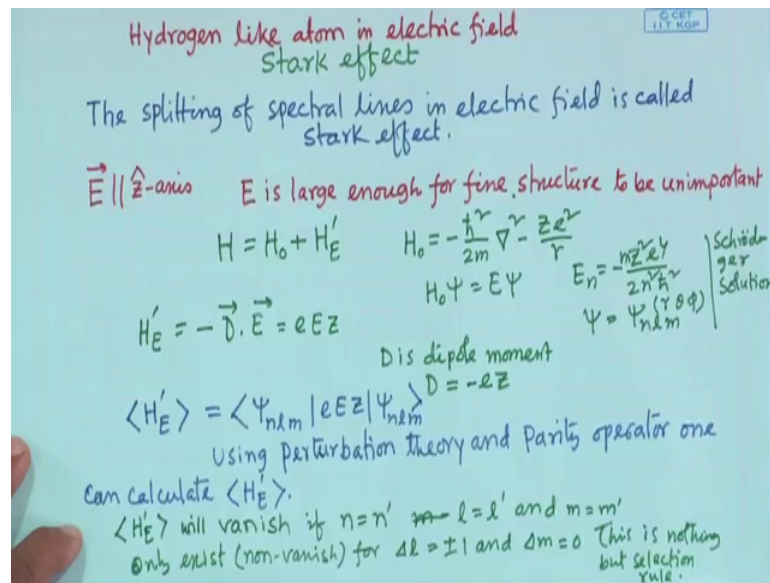 Hydrogen like atom in electric field
Stark effect
© CET
I.I.T. KGP
The splitting of spectral lines in electric field is called
stark effect.
E⃗ || ẑ-axis E is large enough for fine structure to be unimportant
H = H₀ + H'_E H₀ = -ħ²/2m ∇² - Ze²/r
H₀Ψ = EΨ E_n = -mZ²e⁴/2n²ħ²
Ψ = Ψ_nlm(r θ φ)
Schröd-
ger
Solution
H'_E = -D⃗.E⃗ = eEz
D is dipole moment
D = -ez
⟨H'_E⟩ = ⟨Ψ_nlm | eEz | Ψ_nlm⟩
Using perturbation theory and Parity operator one
can calculate ⟨H'_E⟩.
⟨H'_E⟩ will vanish if n=n' l=l' and m=m'
Only exist (non-vanish) for Δl = ±1 and Δm=0 This is nothing
but selection
rule.